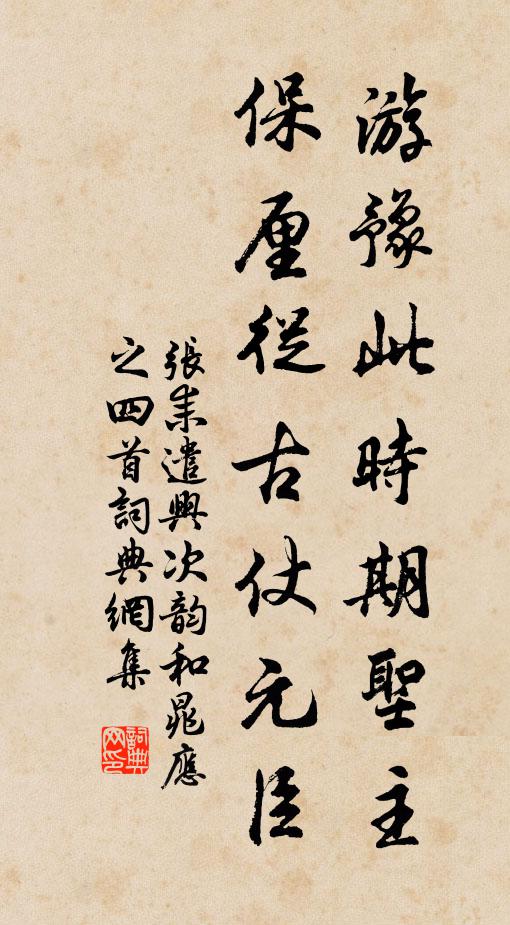 游豫此時期聖主
保厘從古仗元臣
張耒遣興次韵和晁應
之四首詞典網集
詞典
网印